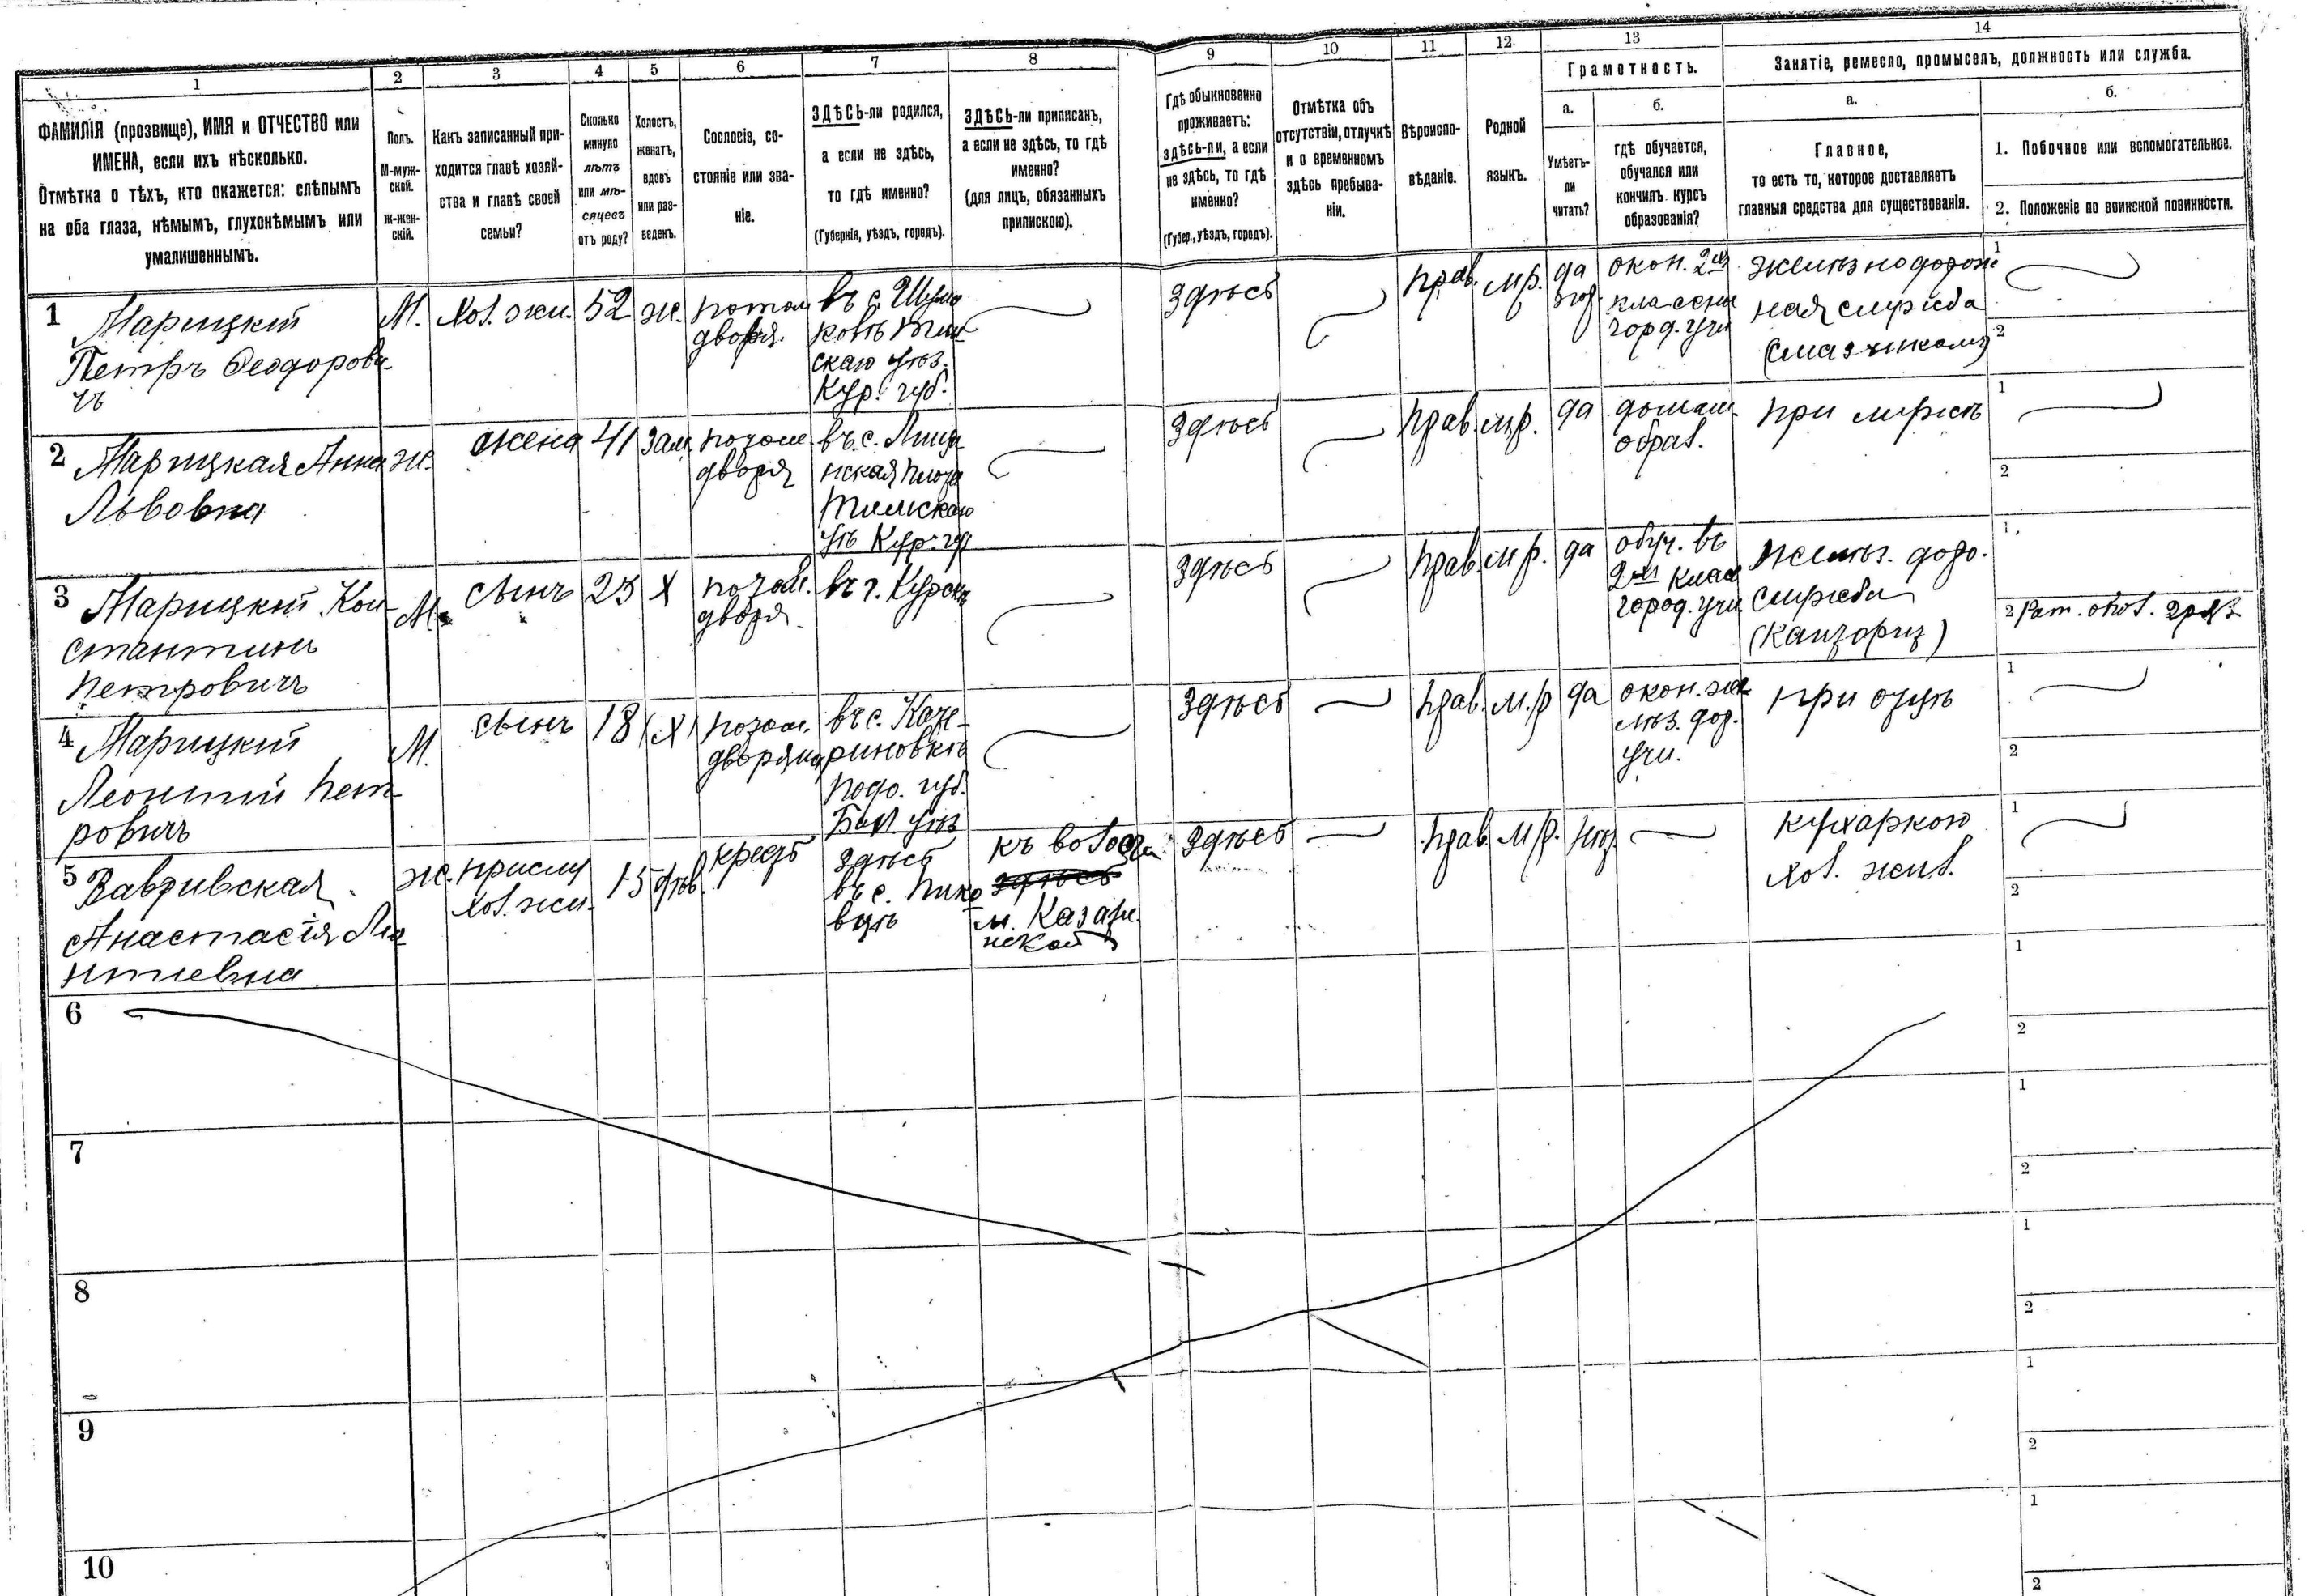 1 2 3 4 5 6 7 8 9 10 11 12 13 14
ФАМИЛІЯ (прозвище), ИМЯ и ОТЧЕСТВО или
ИМЕНА, если ихъ нѣсколько.
Отмѣтка о тѣхъ, кто окажется: слѣпымъ
на оба глаза, нѣмымъ, глухонѣмымъ или
умалишеннымъ.
Полъ.
М-муж-
ской.
ж-жен-
скій.
Какъ записанный при-
ходится главѣ хозяй-
ства и главѣ своей
семьи?
Сколько
минуло
лѣтъ
или мѣ-
сяцевъ
отъ роду?
Холостъ,
женатъ,
вдовъ
или раз-
веденъ.
Сословіе, со-
стояніе или зва-
ніе.
ЗДѢСЬ-ли родился,
а если не здѣсь,
то гдѣ именно?
(Губернія, уѣздъ, городъ).
ЗДѢСЬ-ли приписанъ,
а если не здѣсь, то гдѣ
именно?
(для лицъ, обязанныхъ
припискою).
Гдѣ обыкновенно
проживаетъ:
здѣсь-ли, а если
не здѣсь, то гдѣ
именно?
(Губер., уѣздъ, городъ).
Отмѣтка объ
отсутствіи, отлучкѣ
и о временномъ
здѣсь пребыва-
ніи.
Вѣроиспо-
вѣданіе.
Родной
языкъ.
Грамотность.
а.
Умѣетъ-
ли
читать?
б.
гдѣ обучается,
обучался или
кончилъ курсъ
образованія?
Занятіе, ремесло, промыселъ, должность или служба.
а.
Главное,
то есть то, которое доставляетъ
главныя средства для существованія.
б.
1. Побочное или вспомогательное.
2. Положеніе по воинской повинности.
1 Марицкій
Петръ Феодорови-
чъ
М.
Хоз. жи.
52
ж.
потом
дворя.
въ с.
скаго уѣз.
Кур. губ.
здѣсь
Прав.
м.р.
да
окон. 2хъ
классн
город. учи
желѣзнодорож-
ная служба
(смазчикомъ)
1
2
2 Марицкая Анна
Львовна
ж.
жена
41
зам.
потом
дворя
въ с.
Тимскаго
уѣ Кур. гу
здѣсь
Прав.
м.р.
да
домаш.
образ.
при мужѣ
1
2
3 Марицкій Кон-
стантинъ
Петровичъ
М.
сынъ
23
Х
потом.
дворя
въ г. Курскѣ
здѣсь
Прав.
м.р.
да
обуч. въ
2хъ клас
город. учи
желѣз. доро.
служба
1
2 Рат. опол.
4 Марицкій
Леонтій Пет-
ровичъ
М.
сынъ
18
(Х)
потом.
дворянин
въ с. Кате-
риновкѣ
Подо. губ.
Бал уѣз
здѣсь
Прав.
м.р
да
окон. же-
лѣз. дор.
учи.
при отцѣ
1
2
5
Анастасія Ле
онтіевна
ж.
прислу
Хоз. жи.
15
дѣв.
крест
здѣсь
въ с.
здѣсь
м.
здѣсь
Прав.
м.р.
нѣт
кухаркою
хоз. жил.
1
2
6
1
2
7
1
2
8
1
2
9
1
2
10
1
2